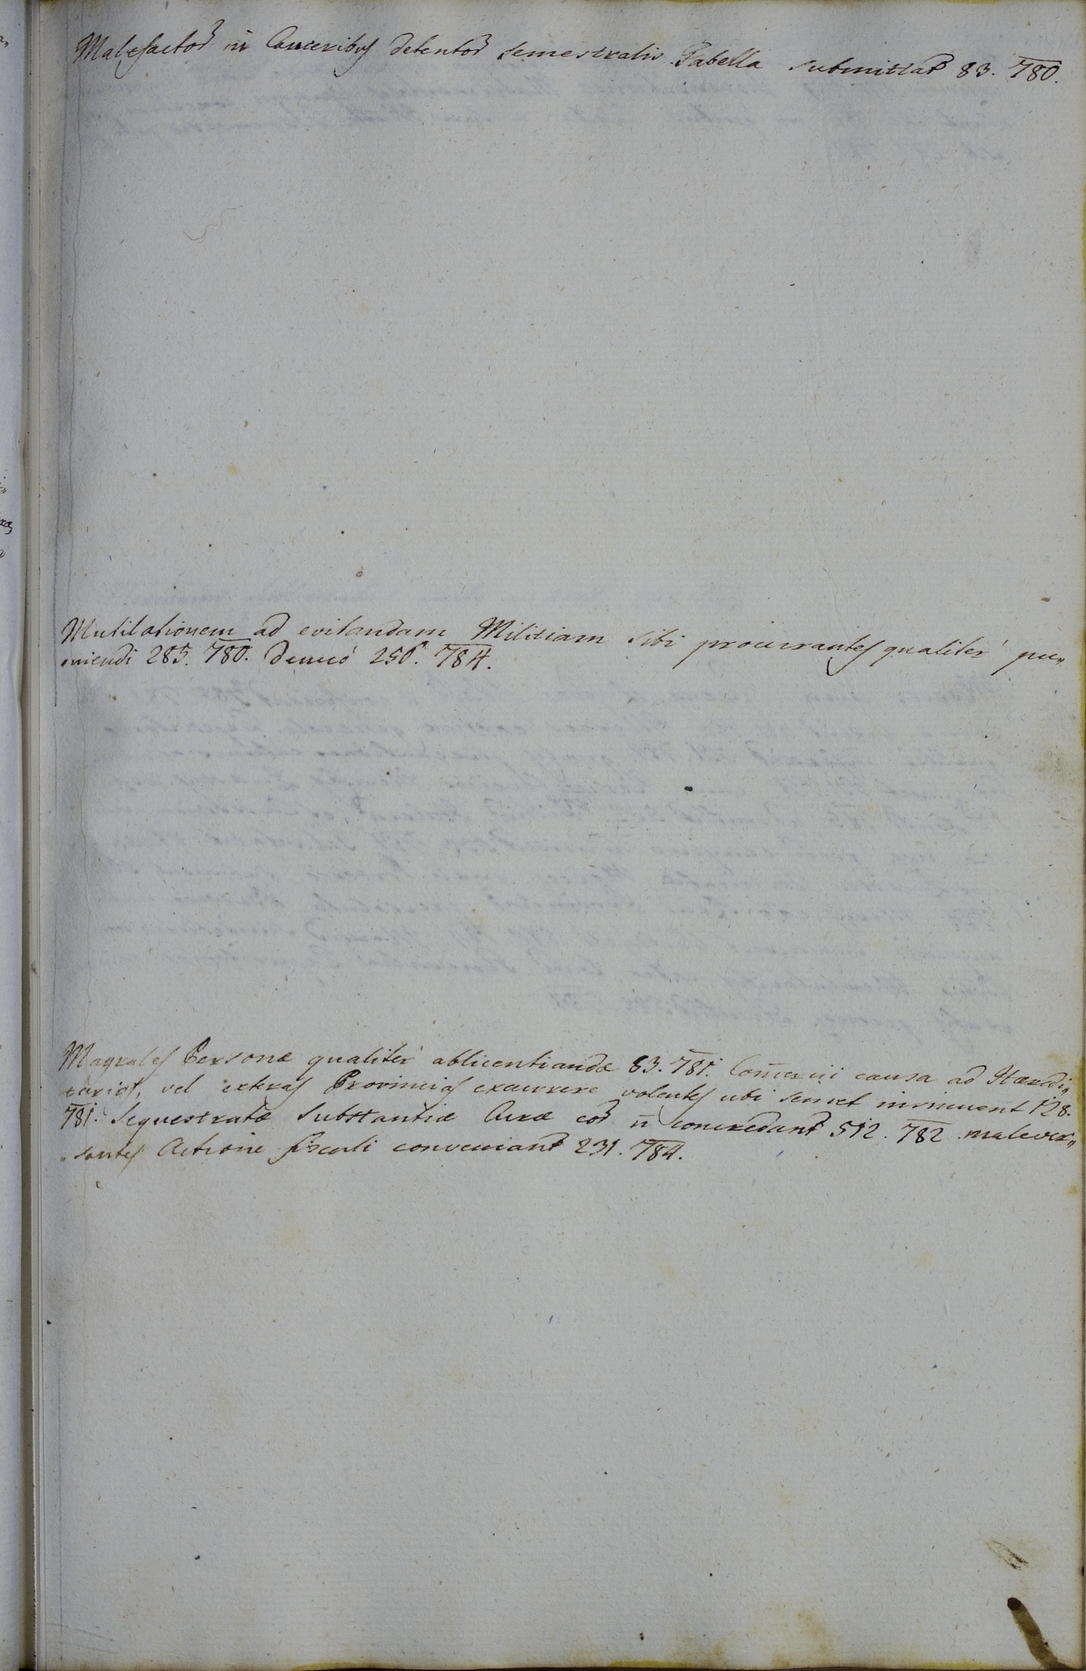 Malefactor̄ in Carceribus detentor̄ semestralis Tabella submittat̄ 83. 780.
Mutilationem ad evitandam Militiam sibi procurantes qualiter pu„
niendi 285. 780. denuo 250. 784.
Magrales Personæ qualiter ablicentiandæ 83. 781. Com̄ercii causa ad Hæredi„
tarias, vel exteras Provincias excurrere volentes ubi semet insinuent 128.
781. Sequestratæ Substantiæ Curæ eor̄ n̄ concredant̄ 512. 782. malever„
santes Actione fiscali conveniant̄ 231. 784.